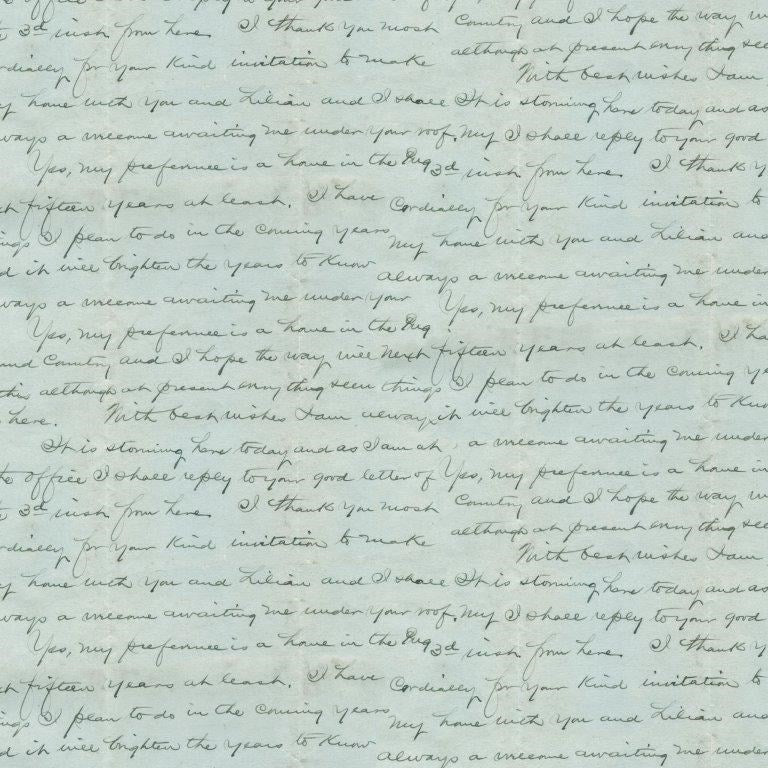 office
3d inst from here. I thank you most
cordially for your kind invitation to make
my home with you and Lilian and I shall
always a welcome awaiting me under your roof.
Yes, my preference is a home in the Pug
next fifteen years at least. I have
things I plan to do in the coming years
and it will brighten the years to know
always a welcome awaiting me under your
Yes, my preference is a home in the Pug
and Country and I hope the way will
this although at present everything seem
here. With best wishes I am always
It is storming here today and as I am at
the office I shall reply to your good letter of
3d inst from here. I thank you most
cordially for your kind invitation to make
my home with you and Lilian and I shall
always a welcome awaiting me under your roof.
Yes, my preference is a home in the Pug
next fifteen years at least. I have
things I plan to do in the coming years
and it will brighten the years to know
Country and I hope the way
although at present everything see
With best wishes I am
It is storming here today and as
I shall reply to your good
3d inst from here. I thank y
Cordially for your kind invitation to
my home with you and Lilian and
always a welcome awaiting me under
Yes, my preference is a home in
next fifteen years at least. I ha
things I plan to do in the coming ye
it will brighten the years to know
a welcome awaiting me under
Yes, my preference is a home in
Country and I hope the way
although at present everything see
With best wishes I am
It is storming here today and as
my I shall reply to your good
3d inst from here. I thank y
Cordially for your kind invitation to
my home with you and Lilian and
always a welcome awaiting me under